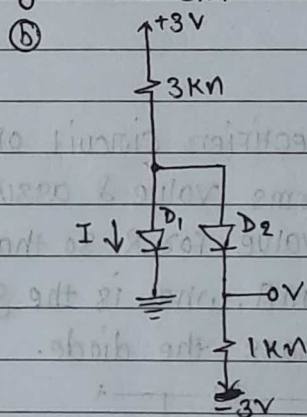 (b)
+3V
3KΩ
I ↓ D1 D2
0V
1KΩ
-3V